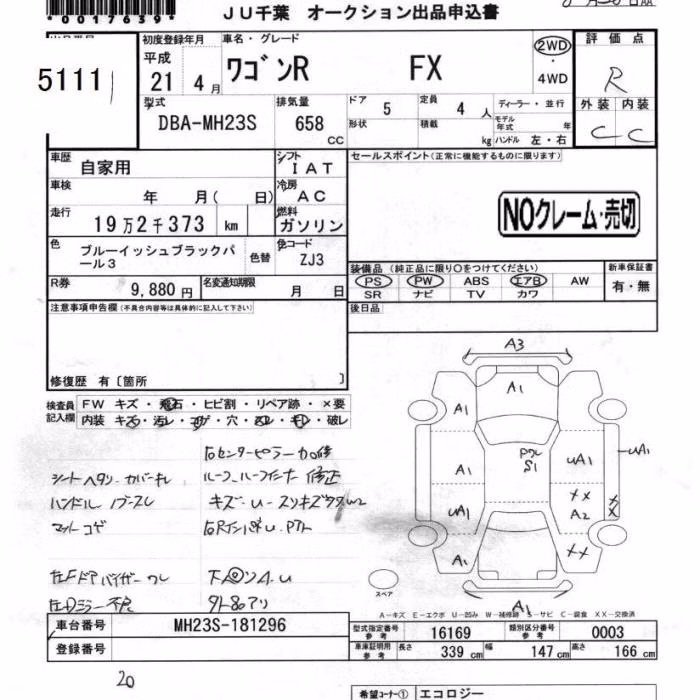 *0017639*
JU千葉 オークション出品申込書
初度登録年月 車名・グレード 評価点
平成 21 4月 ワゴンR FX 2WD ・ 4WD R
51111
型式 排気量 ドア 5 定員 4人 ディーラー・並行 外装 内装
DBA-MH23S 658 CC 形状 積載 kg モデル年式 年 C C
ハンドル 左・右
車歴 自家用 シフト IAT セールスポイント(正常に機能するものに限ります)
車検 年 月( 日) 冷房 AC
走行 19万2千373 km 燃料 ガソリン
NOクレーム・売切
色 ブルーイッシュブラックパール3 色替 色コード ZJ3
装備品(純正品に限り○をつけてください) 新車保証書
R券 9,880円 名変通知期限 月 日
PS PW ABS エアB AW 有・無
SR ナビ TV カワ
注意事項申告欄(不具合内容等は具体的に記入して下さい) 後日品
修復歴 有〔箇所 〕
検査員記入欄 FW キズ・飛石・ヒビ割・リペア跡・×要
内装 キズ・汚レ・コゲ・穴・・・破レ
A3
A1
A1 A1
A1 PアレS1 UA1 UA1
UA1 XX A2 XX
A1 XX
A1
右センターピラー加修
シートヘタリ カバーキレ ルーフ、ルーフインナー修正
ハンドル ノブスレ キズ・U・スリキズ
マットコゲ
左Fドアバイザーワレ
スペア
A−キズ E−エクボ U−凹み W−補修跡 S−サビ C−腐食 XX−交換済
車台番号 MH23S-181296 型式指定番号 参考 16169 類別区分番号 参考 0003
登録番号 車庫証明用 参考 長さ 339 cm 幅 147 cm 高さ 166 cm
20
希望コーナー① エコロジー